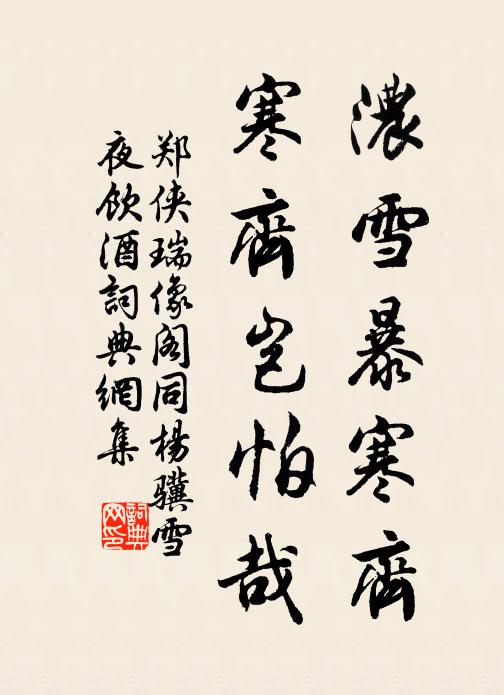 濃雪暴寒齊
寒齊岂怕哉
郑侠瑞像阁同楊骥雪
夜飲酒詞典網集
詞典网印